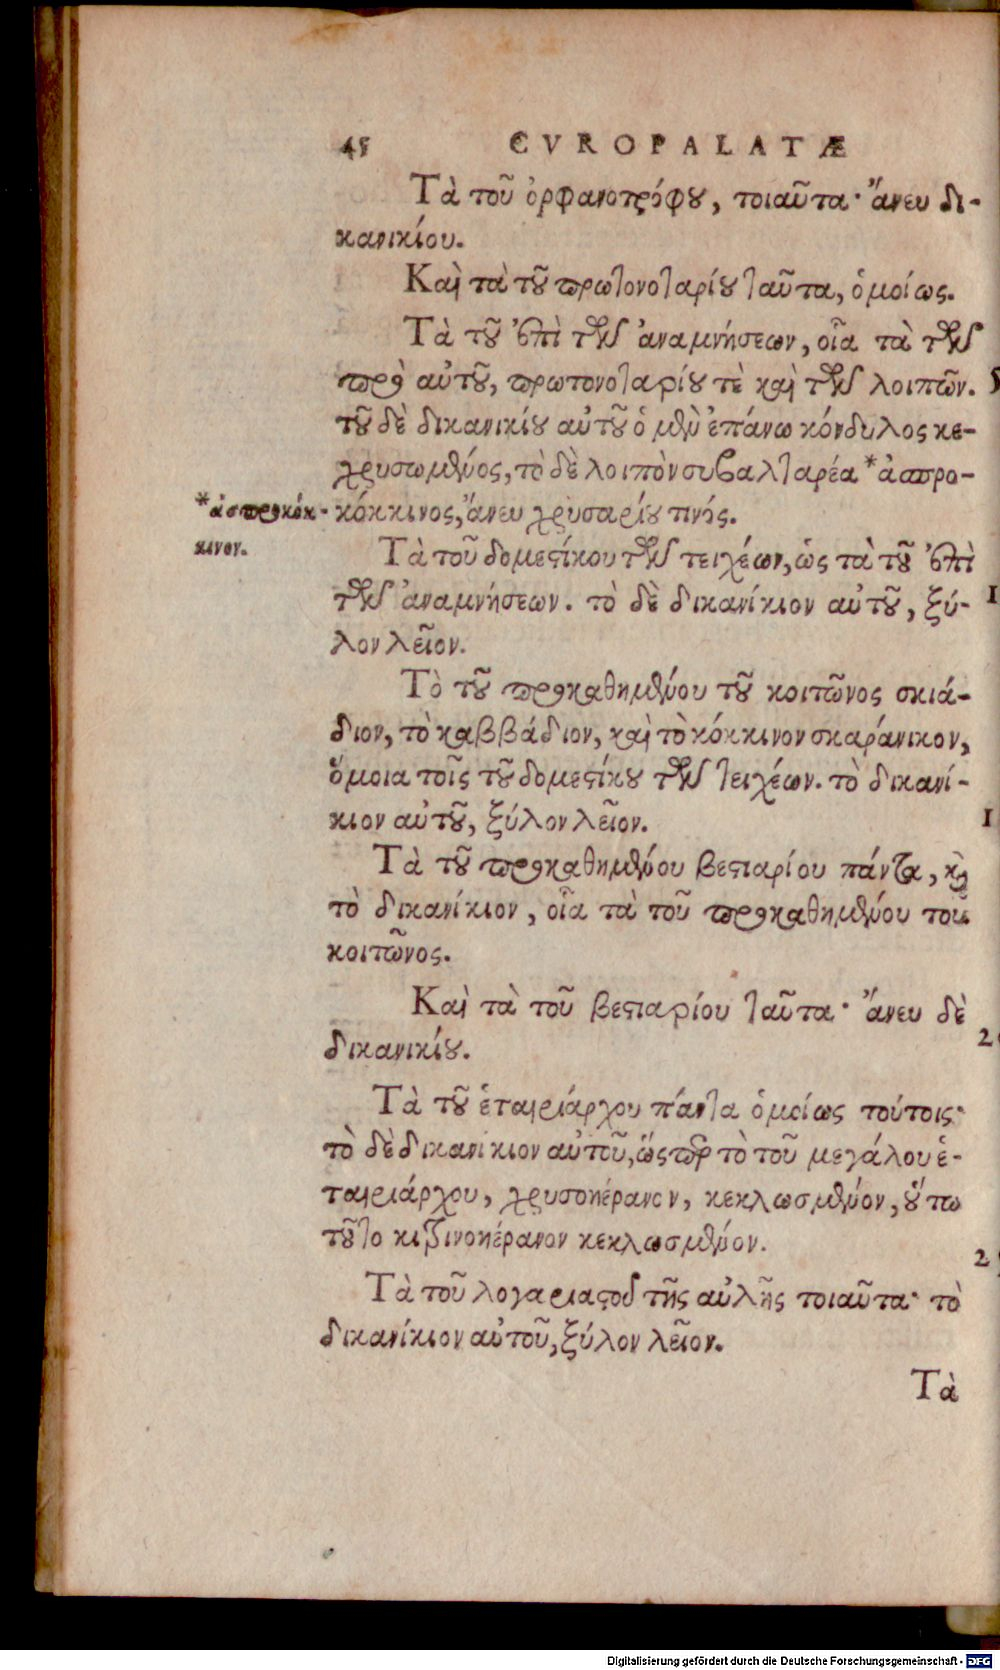 45 CVROPALATÆ
Τὰ τοῦ ὀρφανοτρόφου, τοιαῦτα· ἄνευ δι-
κανικίου.
Καὶ τὰ τοῦ πρωτονοταρίου ταῦτα, ὁμοίως.
Τὰ τοῦ ἐπὶ τῶν ἀναμνήσεων, οἷα τὰ τῶν
πρὸ αὐτοῦ, πρωτονοταρίου τὲ καὶ τῶν λοιπῶν.
τοῦ δὲ δικανικίου αὐτοῦ ὁ μὲν ἐπάνω κόνδυλος κε-
χρυσωμένος, τὸ δὲ λοιπὸν συβαλταρέα *ἀσπρο-
κόκκινος, ἄνευ χρυσαρίου τινός.
*ἀσπροκόκ-
κινον.
Τὰ τοῦ δομεστίκου τῶν τειχέων, ὡς τὰ τοῦ ἐπὶ
τῶν ἀναμνήσεων. τὸ δὲ δικανίκιον αὐτοῦ, ξύ-
λον λεῖον.
Τὸ τοῦ προκαθημένου τοῦ κοιτῶνος σκιά-
διον, τὸ καββάδιον, καὶ τὸ κόκκινον σκαράνικον,
ὅμοια τοῖς τοῦ δομεστίκου τῶν τειχέων. τὸ δικανί-
κιον αὐτοῦ, ξύλον λεῖον.
Τὰ τοῦ προκαθημένου βεστιαρίου πάντα, καὶ
τὸ δικανίκιον, οἷα τὰ τοῦ προκαθημένου τοῦ
κοιτῶνος.
Καὶ τὰ τοῦ βεστιαρίου ταῦτα· ἄνευ δὲ
δικανικίου.
Τὰ τοῦ ἑταιριάρχου πάντα ὁμοίως τούτοις·
τὸ δὲ δικανίκιον αὐτοῦ, ὥσπερ τὸ τοῦ μεγάλου ἑ-
ταιριάρχου, χρυσοκέρανον, κεκλωσμένον, οὕτω
τοῦτο κιτρινοκέρανον κεκλωσμένον.
Τὰ τοῦ λογαριαστοῦ τῆς αὐλῆς τοιαῦτα· τὸ
δικανίκιον αὐτοῦ, ξύλον λεῖον.
Τὰ
Digitalisierung gefördert durch die Deutsche Forschungsgemeinschaft - DFG